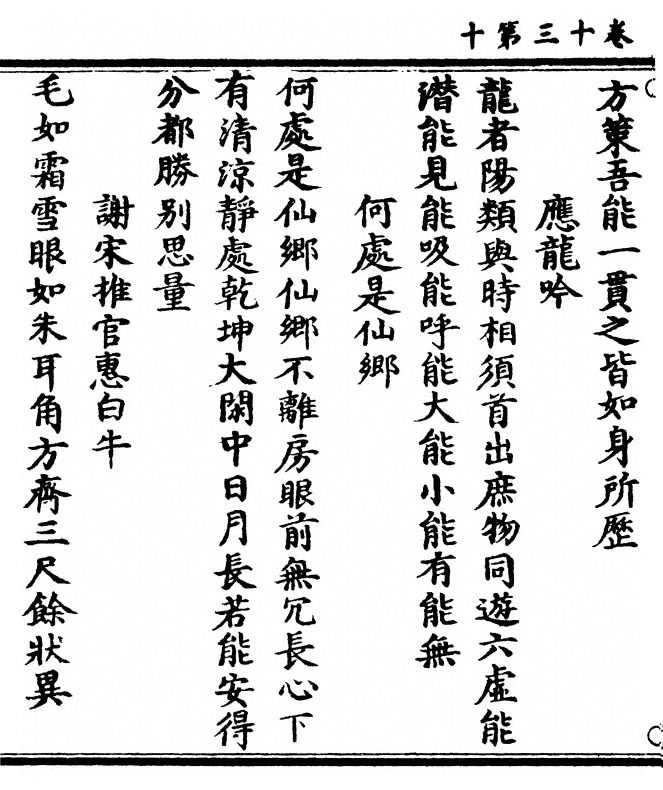 卷十三第十
方策吾能一貫之皆如身所歷
應龍吟
龍者陽類與時相須首出庶物同遊六虛能
潛能見能吸能呼能大能小能有能無
何處是仙鄉
何處是仙鄉仙鄉不離房眼前無冗長心下
有清涼靜處乾坤大閑中日月長若能安得
分都勝別思量
謝宋推官惠白牛
毛如霜雪眼如朱耳角方齊三尺餘狀異